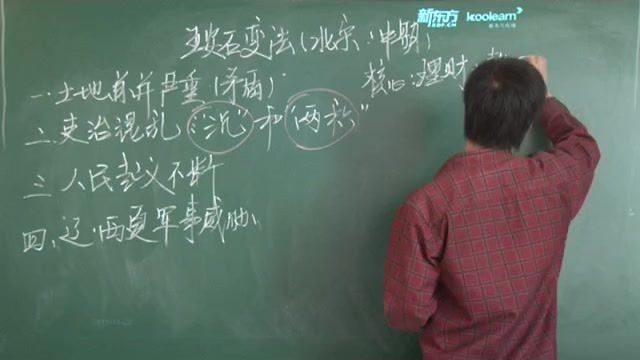 新东方 koolearn
XDF.CN 新东方在线
王安石变法(北宋,中期)
核心:理财,
一.土地兼并严重(矛盾)
二.吏治混乱 "三冗"和"两积"
三.人民起义不断
四、辽、西夏军事威胁、